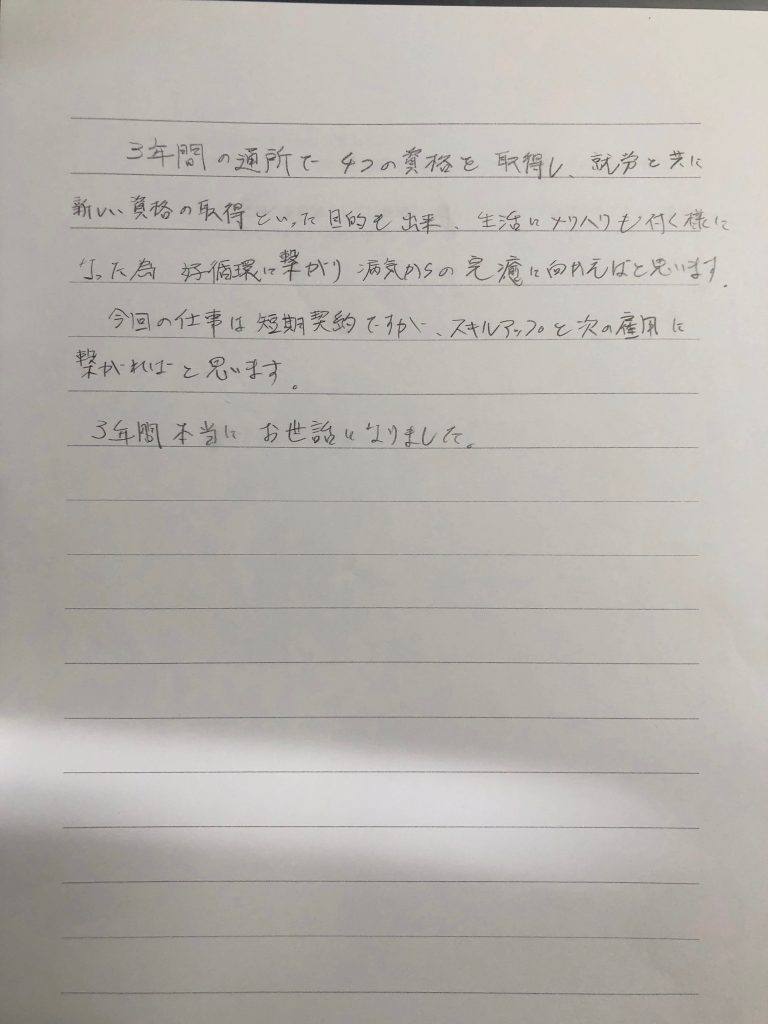 3年間の通所で 4つの資格を 取得し、就労と共に
新しい資格の取得といった目的も出来、生活にメリハリも付く様に
なった為 好循環に繋がり 病気からの完癒に向かえばと思います。
今回の仕事は短期契約ですが、スキルアップと次の雇用に
繋がればと思います。
3年間本当に お世話になりました。